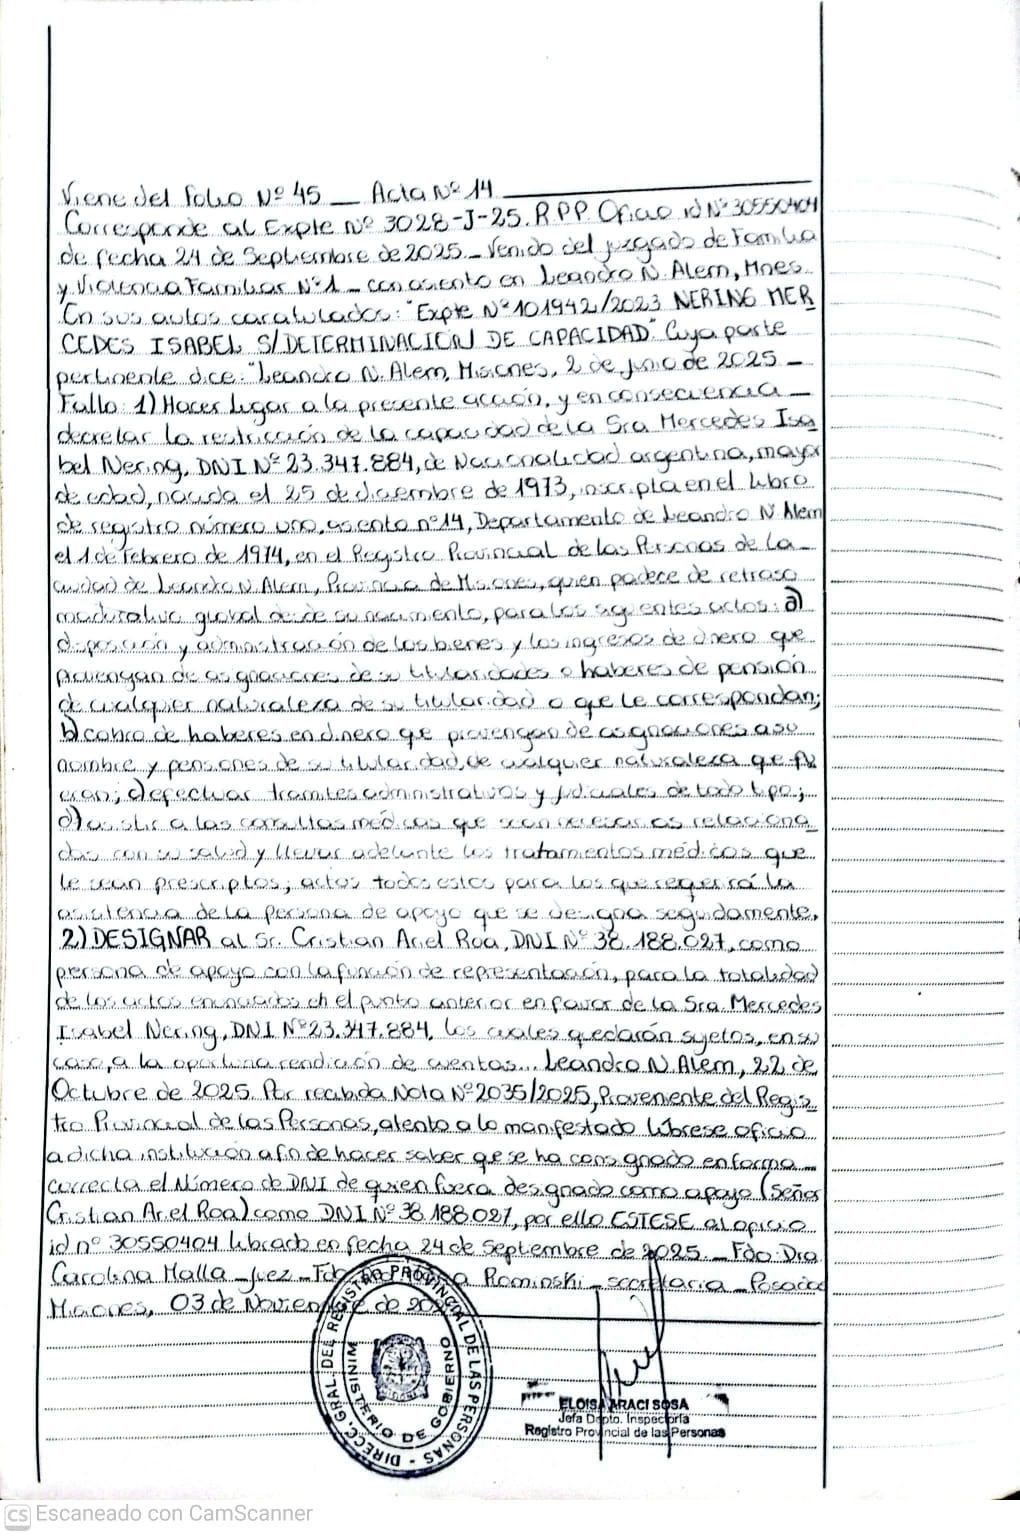 Viene del Folio Nº 45 _ Acta Nº 14
Corresponde al Expte Nº 3028-J-25. R.P.P. Oficio id Nº 30550404
de fecha 24 de Septiembre de 2025._ Venido del juzgado de Familia
y Violencia Familiar Nº1 _ con asiento en Leandro N. Alem, Mnes.
En sus autos caratulados: "Expte Nº 101942/2023 NERING MER
CEDES ISABEL S/DETERMINACION DE CAPACIDAD". Cuya parte
pertinente dice: "Leandro N. Alem, Misiones, 2 de junio de 2025 _
Fallo: 1) Hacer lugar a la presente acción, y en consecuencia _
decretar la restricción de la capacidad de la Sra Mercedes Isa
bel Nering, DNI Nº 23.347.884, de Nacionalidad argentina, mayor
de edad, nacida el 25 de diciembre de 1973, inscripta en el libro
de registro número uno, asiento nº14, Departamento de Leandro N Alem
el 1 de Febrero de 1974, en el Registro Provincial de las Personas de la _
ciudad de Leandro N. Alem, Provincia de Misiones, quien padece de retraso
madurativo global desde su nacimiento, para los siguientes actos: a)
disposición y administración de los bienes y los ingresos de dinero que
provengan de asignaciones de su titularidades o haberes de pensión
de cualquier naturaleza de su titularidad o que le correspondan;
b) cobro de haberes en dinero que provengan de asignaciones a su
nombre y pensiones de su titularidad, de cualquier naturaleza que fu
eran; c) efectuar tramites administrativos y judiciales de todo tipo;
d) asistir a las consultas médicas que sean necesarias relaciona
das con su salud y llevar adelante los tratamientos médicos que
le sean prescriptos; actos todos estos para los que requerirá la
asistencia de la persona de apoyo que se designa seguidamente.
2) DESIGNAR al Sr. Cristian Ariel Roa, DNI Nº 38.188.027, como
persona de apoyo con la función de representación, para la totalidad
de los actos enunciados en el punto anterior en favor de la Sra. Mercedes
Isabel Nering, DNI Nº23.347.884, los cuales quedarán sujetos, en su
caso, a la oportuna rendición de cuentas... Leandro N. Alem, 22 de
Octubre de 2025. Por recibida Nota Nº 2035/2025, Proveniente del Regis
tro Provincial de las Personas, atento a lo manifestado librese oficio
a dicha institución a fin de hacer saber que se ha consignado en forma _
correcta el Número de DNI de quien fuera designado como apoyo (Señor
Cristian Ariel Roa) como DNI Nº 38.188.027, por ello ESTESE al oficio
id nº 30550404 librado en fecha 24 de Septiembre de 2025._ Fdo: Dra
Carolina Malla _ Juez _ Rominski _ secretaria _ Posadas
Misiones, 03 de Noviembre de
DIRECC. GRAL. DEL REGISTRO PROVINCIAL DE LAS PERSONAS -
MINISTERIO DE GOBIERNO
ELOISA ARACI SOSA
Jefa Dpto. Inspectoría
Registro Provincial de las Personas
CS Escaneado con CamScanner